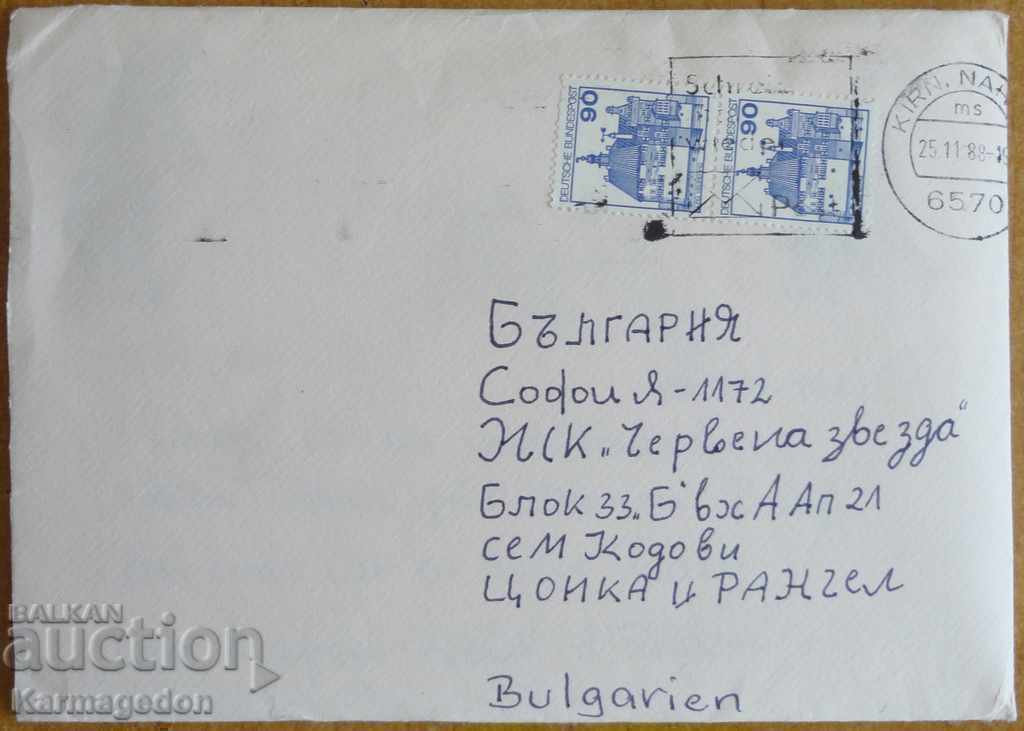 90
DEUTSCHE BUNDESPOST
90
DEUTSCHE BUNDESPOST
Schreib
KIRN, NAH
ms
25.11.88-16
6570
БЪЛГАРИЯ
София-1172
ЖСК „Червена звезда“
Блок 33„Б“ вх А Ап 21
сем Кодови
ЦОНКА и РАНГЕЛ
Bulgarien
BALKAN
auction
Karmagedon